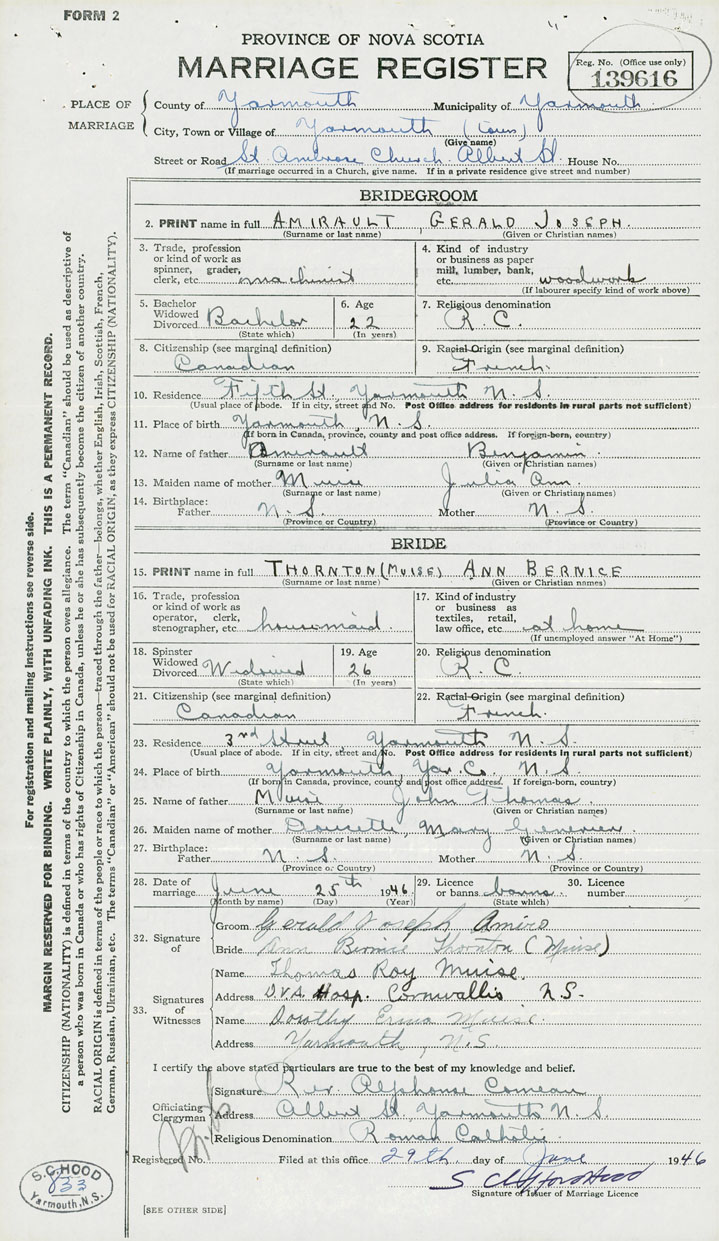 FORM 2
PROVINCE OF NOVA SCOTIA
MARRIAGE REGISTER
Reg. No. (Office use only)
139616
PLACE OF MARRIAGE
County of Yarmouth Municipality of Yarmouth
City, Town or Village of Yarmouth (town)
(Give name)
Street or Road St. Ambrose Church Albert St. House No.
(If marriage occurred in a Church, give name. If in a private residence give street and number)
BRIDEGROOM
2. PRINT name in full AMIRAULT, GERALD JOSEPH.
(Surname or last name) (Given or Christian names)
3. Trade, profession or kind of work as spinner, grader, clerk, etc. machinist
4. Kind of industry or business as paper mill, lumber, bank, etc. woodwork
(If labourer specify kind of work above)
5. Bachelor Widowed Divorced Bachelor
(State which)
6. Age 22
(In years)
7. Religious denomination R.C.
8. Citizenship (see marginal definition) Canadian
9. Racial Origin (see marginal definition) French.
10. Residence Fifth St. Yarmouth N.S.
(Usual place of abode. If in city, street and No. Post Office address for residents in rural parts not sufficient)
11. Place of birth Yarmouth, N.S.
(If born in Canada, province, county and post office address. If foreign-born, country)
12. Name of father Amirault Benjamin
(Surname or last name) (Given or Christian names)
13. Maiden name of mother Muise Julia Ann.
(Surname or last name) (Given or Christian names)
14. Birthplace: Father N.S. Mother N.S.
(Province or Country) (Province or Country)
BRIDE
15. PRINT name in full THORNTON (MUISE) ANN BERNICE
(Surname or last name) (Given or Christian names)
16. Trade, profession or kind of work as operator, clerk, stenographer, etc. housemaid
17. Kind of industry or business as textiles, retail, law office, etc. at home
(If unemployed answer "At Home")
18. Spinster Widowed Divorced Widowed
(State which)
19. Age 26
(In years)
20. Religious denomination R.C.
21. Citizenship (see marginal definition) Canadian
22. Racial Origin (see marginal definition) French.
23. Residence 3rd Street Yarmouth N.S.
(Usual place of abode. If in city, street and No. Post Office address for residents in rural parts not sufficient)
24. Place of birth Yarmouth Yar. Co., N.S.
(If born in Canada, province, county and post office address. If foreign-born, country)
25. Name of father Muise John Thomas.
(Surname or last name) (Given or Christian names)
26. Maiden name of mother Doucette, Mary
(Surname or last name) (Given or Christian names)
27. Birthplace: Father N.S. Mother N.S.
(Province or Country) (Province or Country)
28. Date of marriage June 25th 1946
(Month by name) (Day) (Year)
29. Licence or banns banns
(State which)
30. Licence number
32. Signature of
Groom Gerald Joseph Amiro
Bride Ann Bernice Thornton (Muise)
33. Signatures of Witnesses
Name Thomas Roy Muise.
Address D.V.A. Hosp. Cornwallis N.S.
Name Dorothy Erma Muise.
Address Yarmouth, N.S.
I certify the above stated particulars are true to the best of my knowledge and belief.
Officiating Clergyman
Signature Rev. Alphonse Comeau
Address Albert St. Yarmouth N.S.
Religious Denomination Roman Catholic
Registered No. Filed at this office 29th day of June 1946
S. Clifford Hood
Signature of Issuer of Marriage Licence
[SEE OTHER SIDE]
S.C. HOOD
833
Yarmouth, N.S.
For registration and mailing instructions see reverse side.
MARGIN RESERVED FOR BINDING. WRITE PLAINLY, WITH UNFADING INK. THIS IS A PERMANENT RECORD.
CITIZENSHIP (NATIONALITY) is defined in terms of the country to which the person owes allegiance. The term "Canadian" should be used as descriptive of
a person who was born in Canada or who has rights of Citizenship in Canada, unless he or she has subsequently become the citizen of another country.
RACIAL ORIGIN is defined in terms of the people or race to which the person—traced through the father—belongs, whether English, Irish, Scottish, French,
German, Russian, Ukrainian, etc. The terms "Canadian" or "American" should not be used for RACIAL ORIGIN, as they express CITIZENSHIP (NATIONALITY).